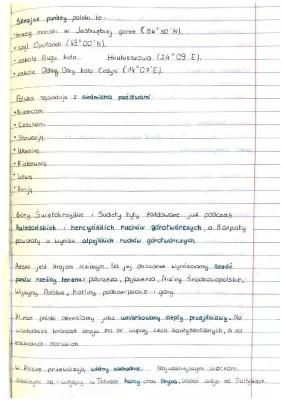 Skrajne punkty polski to:
• brzeg morski w Jastrzębiej górze (54°50'N).
• szyt Opołonek (49°00'N)
• zakole Bugu koło Hrubieszowa (24°09'E).
• zakole Odry koło Cedyni (14°07'E).
Polska sąsiaduje z siedmioma państwami:
• Niemcami
• Czechami
• Słowacją
• Ukrainą
• Białorusią
• Litwą
• Rosją
Góry Świętokrzyskie i Sudety były fałdowane już podczas
kaledońskich i hercyńskich ruchów górotwórczych, a Karpaty
powstały w wyniku alpejskich ruchów górotwórczych.
Polska jest krajem nizinnym. Na jej obszarze wyróżniamy sześć
pasów rzeźby terenu: pobrzeża, pojezierza, Niziny Środkowopolskie,
Wyżyny Polskie, Kotliny podkarpackie i góry.
Klimat polski określamy jako umiarkowany ciepły przejściowy. Na
wschodnich krańcach kraju ma on więcej cech kontynentalnych, a na
zachodnich morskich.
W Polsce przeważają wiatry zachodnie. Najważniejszym wiatrem
lokalnym są: wiejący w Tatrach halny oraz bryza, która wieje na